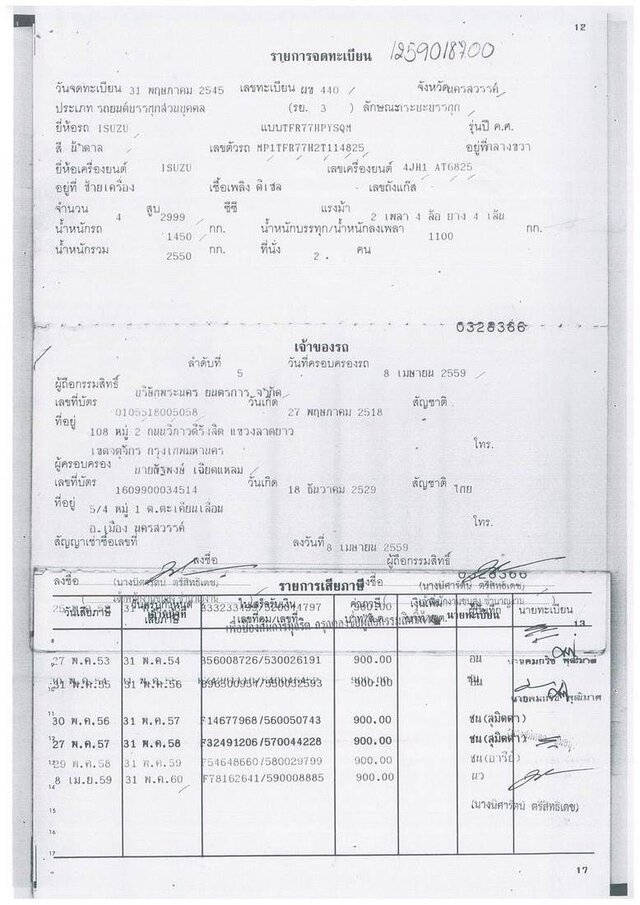 12
รายการจดทะเบียน 1259018700
วันจดทะเบียน 31 พฤษภาคม 2545 เลขทะเบียน ผข 440 จังหวัดนครสวรรค์
ประเภท รถยนต์บรรทุกส่วนบุคคล (รย. 3 ) ลักษณะกระบะบรรทุก
ยี่ห้อรถ ISUZU แบบTFR77HPYSQM รุ่นปี ค.ศ.
สี น้ำตาล เลขตัวรถ MP1TFR77H2T114825 อยู่ที่กลางขวา
ยี่ห้อเครื่องยนต์ ISUZU เลขเครื่องยนต์ 4JH1 AT6825
อยู่ที่ ซ้ายเครื่อง เชื้อเพลิง ดีเซล เลขถังแก๊ส
จำนวน 4 สูบ 2999 ซีซี แรงม้า 2 เพลา 4 ล้อ ยาง 4 เส้น
น้ำหนักรถ 1450 กก. น้ำหนักบรรทุก/น้ำหนักลงเพลา 1100 กก.
น้ำหนักรวม 2550 กก. ที่นั่ง 2 คน
0328366
เจ้าของรถ
ลำดับที่ 5 วันที่ครอบครองรถ 8 เมษายน 2559
ผู้ถือกรรมสิทธิ์ บริษัทพระนคร ยนตรการ จำกัด
เลขที่บัตร 0105518005058 วันเกิด 27 พฤษภาคม 2518 สัญชาติ
ที่อยู่ 108 หมู่ 2 ถนนวิภาวดีรังสิต แขวงลาดยาว
เขตจตุจักร กรุงเทพมหานคร โทร.
ผู้ครอบครอง เฉียดแหลม
เลขที่บัตร 1609900034514 วันเกิด 18 ธันวาคม 2529 สัญชาติ ไทย
ที่อยู่ 5/4 หมู่ 1 ต.ตะเคียนเลื่อน
อ.เมือง นครสวรรค์ โทร.
สัญญาเช่าซื้อเลขที่ ลงวันที่ 8 เมษายน 2559
ลงชื่อ ผู้ถือกรรมสิทธิ์
ลงชื่อ (นางนิศารัตน์ ตรีสิทธิเดช) รายการเสียภาษี (นางนิศารัตน์ ตรีสิทธิเดช) 0328366
วันเสียภาษี นายทะเบียน
13
27 พ.ค.53 31 พ.ค.54 B56008726/530026191 900.00
31 พ.ค.56 900.00
30 พ.ค.56 31 พ.ค.57 F14677968/560050743 900.00 ชน(สุมิตตา)
27 พ.ค.57 31 พ.ค.58 F32491206/570044228 900.00 ชน(สุมิตตา)
29 พ.ค.58 31 พ.ค.59 F54648660/580029799 900.00 ชน(อารีย์)
8 เม.ย.59 31 พ.ค.60 F78162641/590008885 900.00 นว
(นางนิศารัตน์ ตรีสิทธิเดช)
17